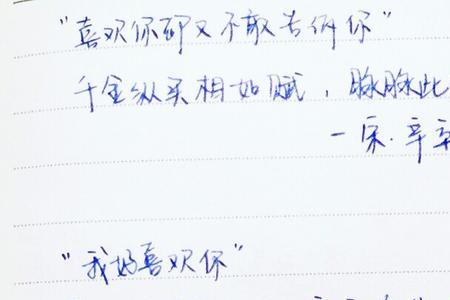 "喜欢你却又不敢告诉你"
千金纵买相如赋，脉脉此
—宋·辛
"我好喜欢你"